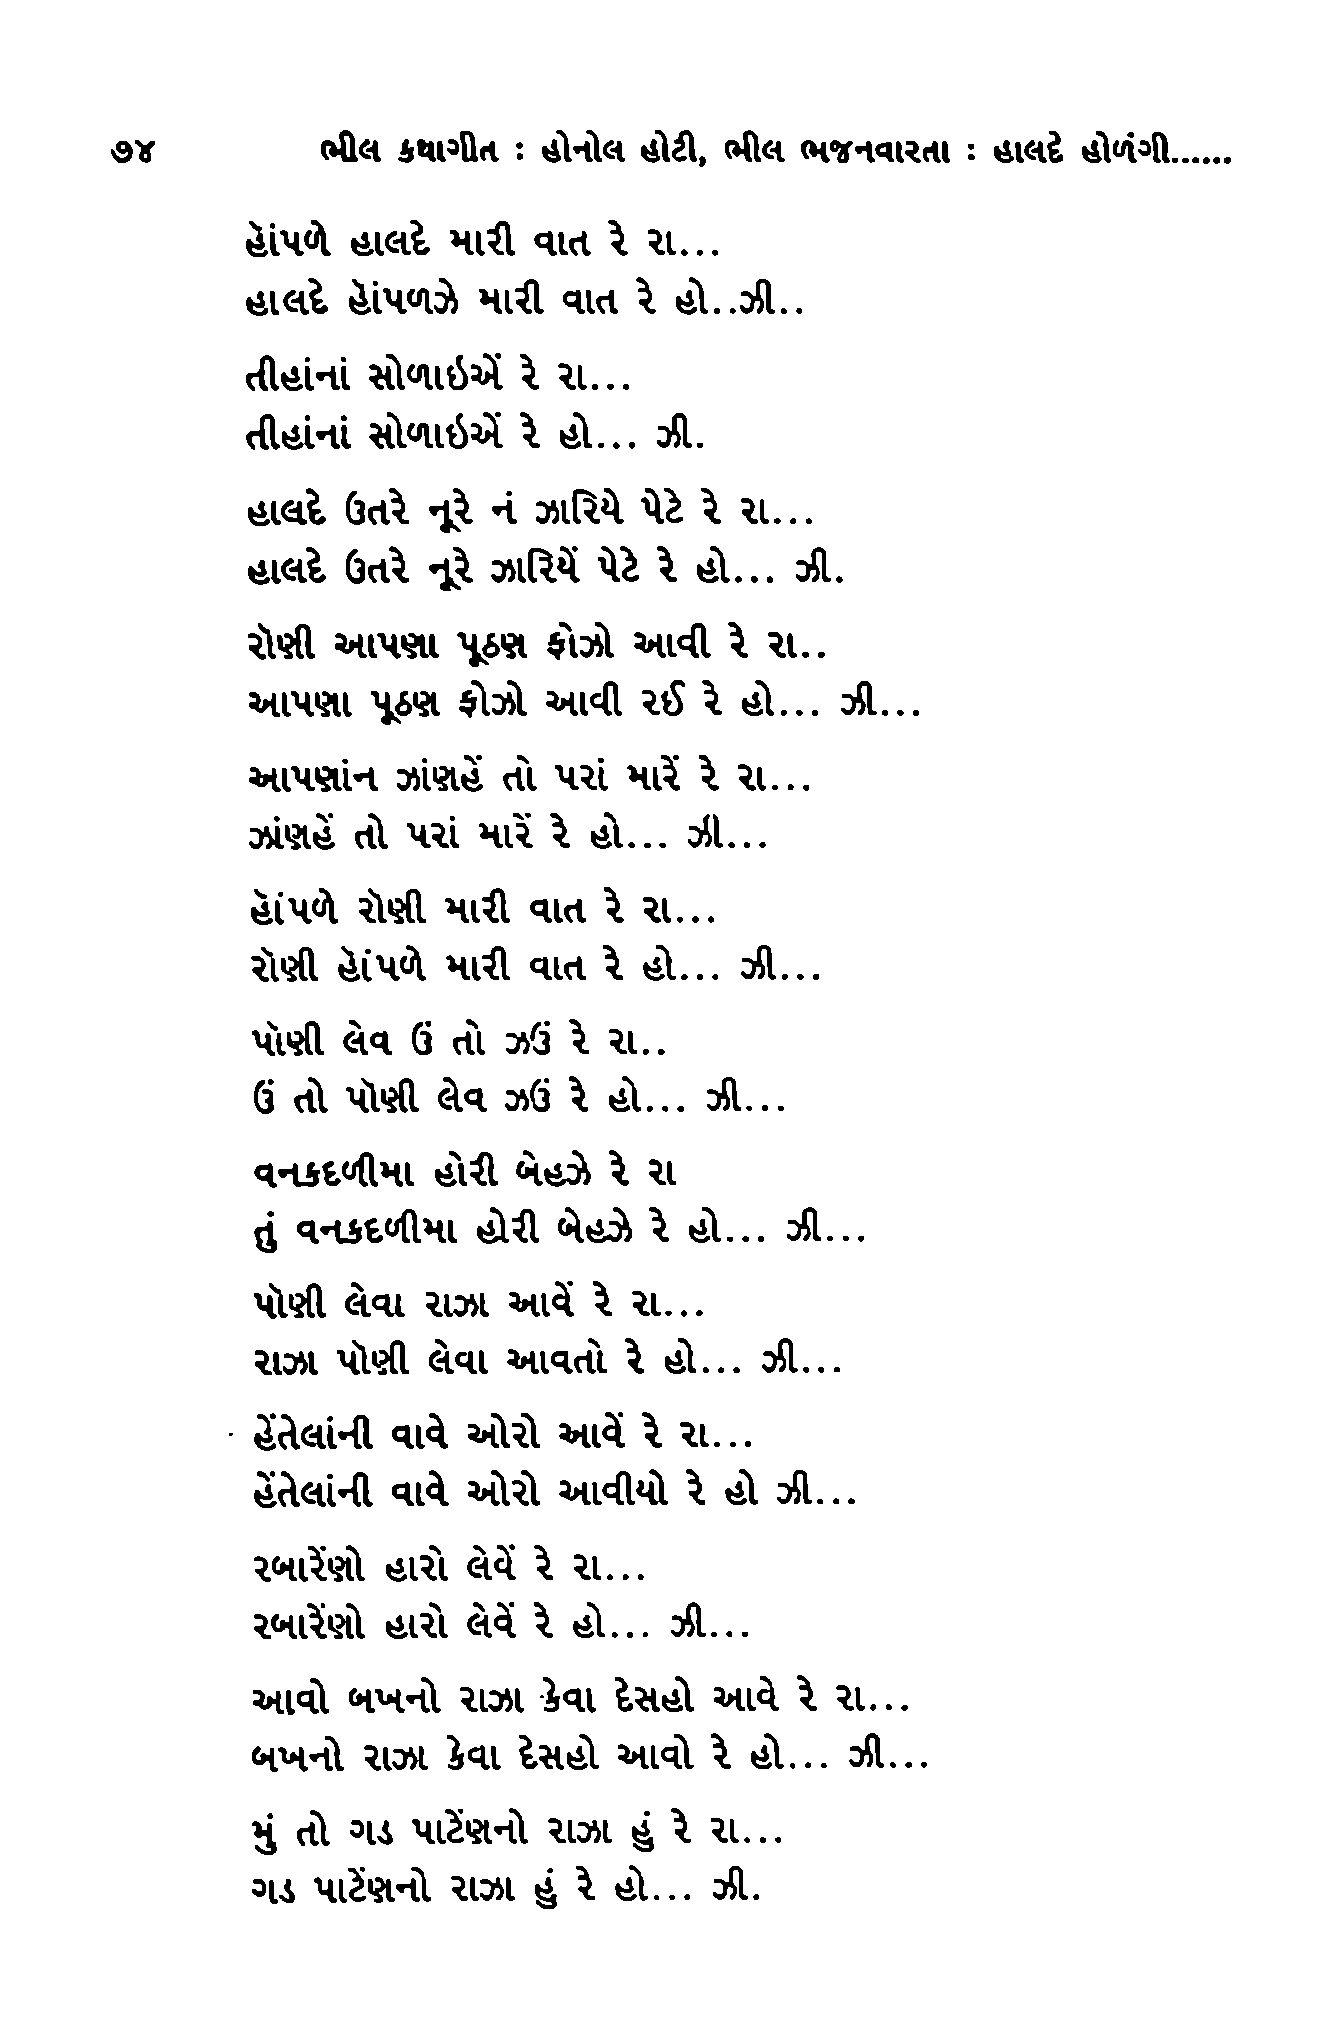 ૭૪ ભીલ કથાગીત : હોનોલ હોટી, ભીલ ભજનવારતા : હાલદે હોળંગી......
હૉંપળે હાલદે મારી વાત રે રા...
હાલદે હૉંપળઝે મારી વાત રે હો..ઝી..
તીહાંનાં સોળાઇએં રે રા...
તીહાંનાં સોળાઇએં રે હો... ઝી.
હાલદે ઉતરે નૂરે નં ઝારિયે પેટે રે રા...
હાલદે ઉતરે નૂરે ઝારિયેં પેટે રે હો... ઝી.
રૉણી આપણા પૂઠણ ફોઝો આવી રે રા..
આપણા પૂઠણ ફોઝો આવી રઈ રે હો... ઝી...
આપણાંન ઝાંણહેં તો પરાં મારેં રે રા...
ઝાંણહેં તો પરાં મારેં રે હો... ઝી...
હૉંપળે રૉણી મારી વાત રે રા...
રૉણી હૉંપળે મારી વાત રે હો... ઝી...
પૉણી લેવ ઉં તો ઝઉં રે રા..
ઉં તો પૉણી લેવ ઝઉં રે હો... ઝી...
વનકદળીમા હોરી બેહઝે રે રા
તું વનકદળીમા હોરી બેહઝે રે હો... ઝી...
પૉણી લેવા રાઝા આવેં રે રા...
રાઝા પૉણી લેવા આવતો રે હો... ઝી...
હેંતેલાંની વાવે ઓરો આવેં રે રા...
હેંતેલાંની વાવે ઓરો આવીયો રે હો ઝી...
રબારેંણો હારો લેવેં રે રા...
રબારેંણો હારો લેવેં રે હો... ઝી...
આવો બખનો રાઝા કેવા દેસહો આવે રે રા...
બખનો રાઝા કેવા દેસહો આવો રે હો... ઝી...
મું તો ગડ પાટેંણનો રાઝા હું રે રા...
ગડ પાટેંણનો રાઝા હું રે હો... ઝી.